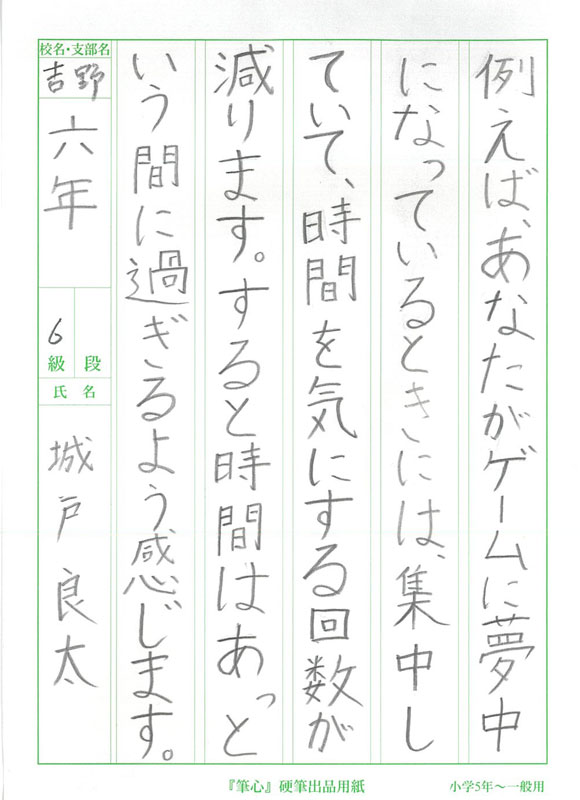 例えば、あなたがゲームに夢中
になっているときには、集中し
ていて、時間を気にする回数が
減ります。すると時間はあっと
いう間に過ぎるよう感じます。
校名・支部名
吉野
六年
段
6級
氏名
城戸良太
『筆心』硬筆出品用紙
小学5年～一般用